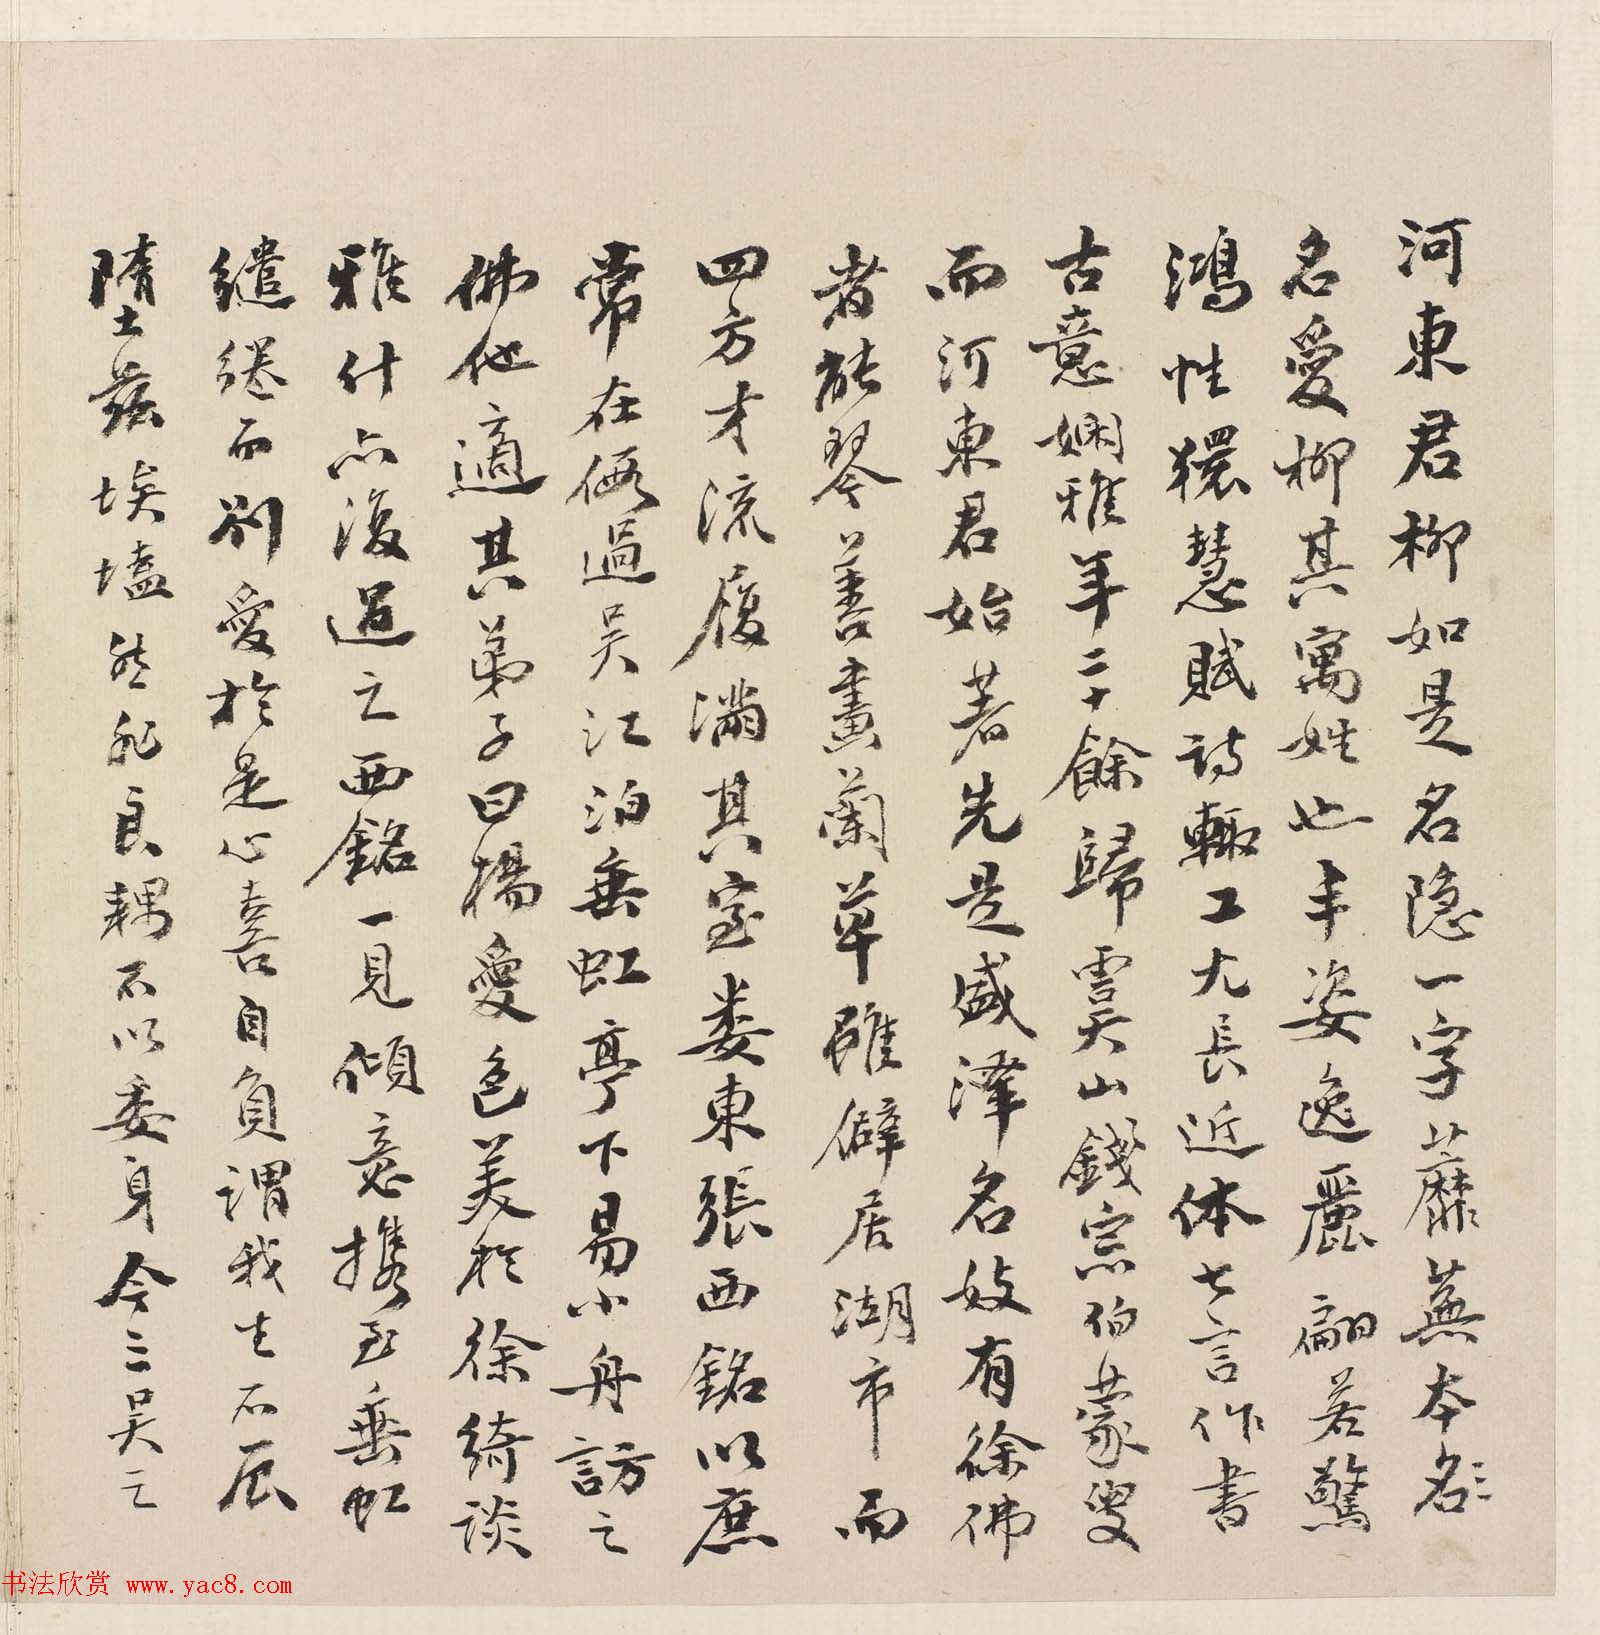 河東君柳如是名隐一字蘼蕪本名〻
名愛柳其寓姓也丰姿逸麗翩若驚
鴻性獧慧賦詩輒工尤長近体七言作書
古意嫻雅年二十餘歸雲天山錢宗伯蒙叟
而河東君始著先是盛澤名妓有徐佛
者能琴善畫蘭草雖僻居湖市而
四方才流履满其室婁東張西銘以庶
常在假過吴江泊垂虹亭下易小舟訪之
佛他適其弟子曰楊愛色美於徐綺談
雅什亦復過之西銘一見傾意携至垂虹
繾綣而别愛於是心喜自負謂我生不辰
墮兹埃壒然非良耦不以委身今三吴之
书法欣赏 www.yac8.com